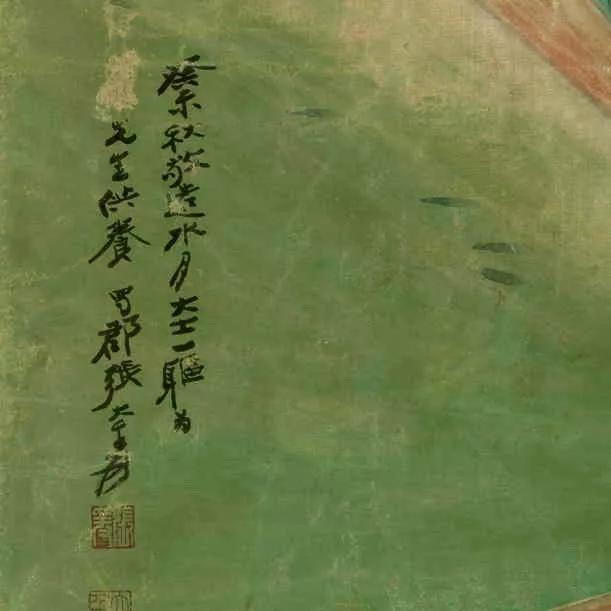 癸未秋敬造水月大士一軀为
先生供養 蜀郡張大千爰